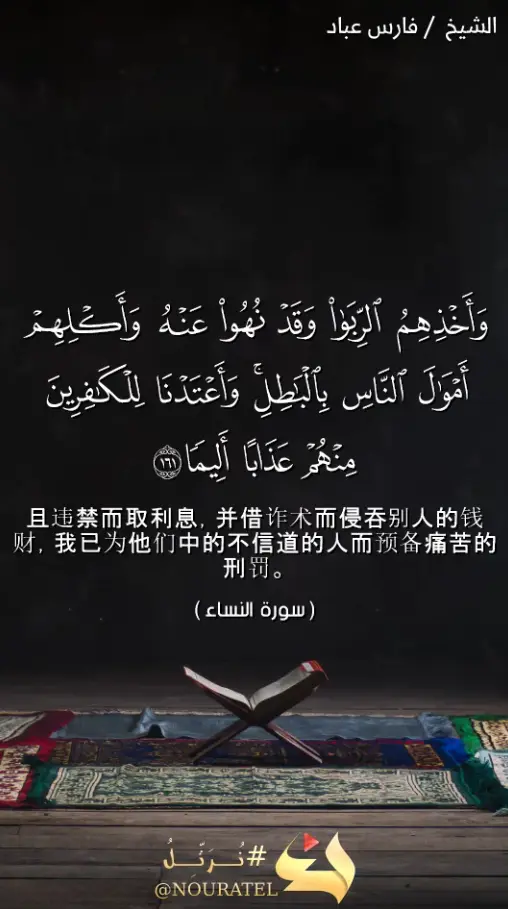 الشيخ / فارس عباد
وَأَخْذِهِمُ ٱلرِّبَوٰا۟ وَقَدْ نُهُوا۟ عَنْهُ وَأَكْلِهِمْ
أَمْوَٰلَ ٱلنَّاسِ بِٱلْبَٰطِلِ ۚ وَأَعْتَدْنَا لِلْكَٰفِرِينَ
مِنْهُمْ عَذَابًا أَلِيمًا ١٦١
且违禁而取利息, 并借诈术而侵吞别人的钱
财, 我已为他们中的不信道的人而预备痛苦的
刑罚。
( سورة النساء )
#نُرَتِّلُ
@NOURATEL